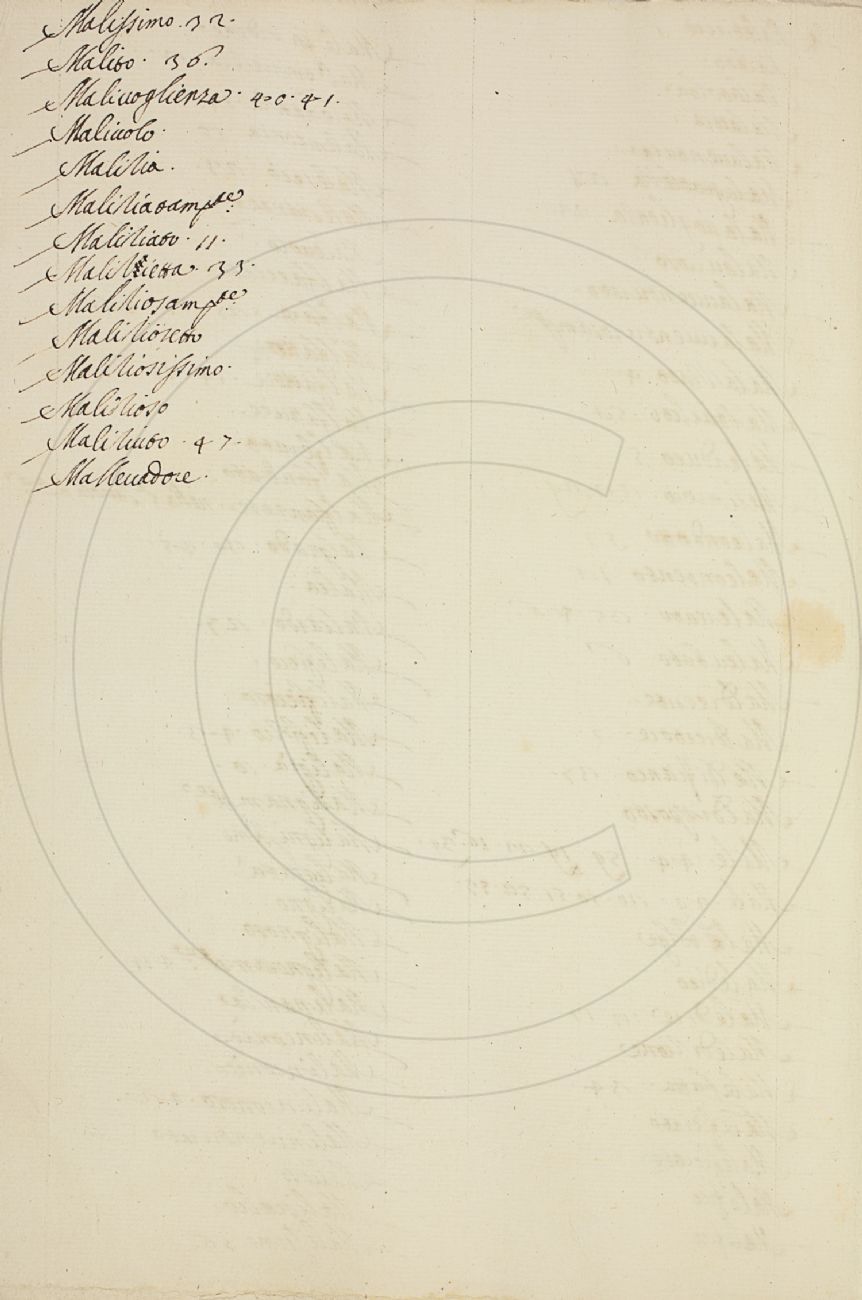 Malissimo. 32.
Malito. 36.
Malivoglienza. 40. 41.
Malivolo.
Malitia.
Malitiatam.te
Malitiato. 11.
Malitietta. 33.
Malitiosam.te
Malitiosetto
Malitiosissimo.
Malitioso
Malitiuto. 47.
Mallevadore.